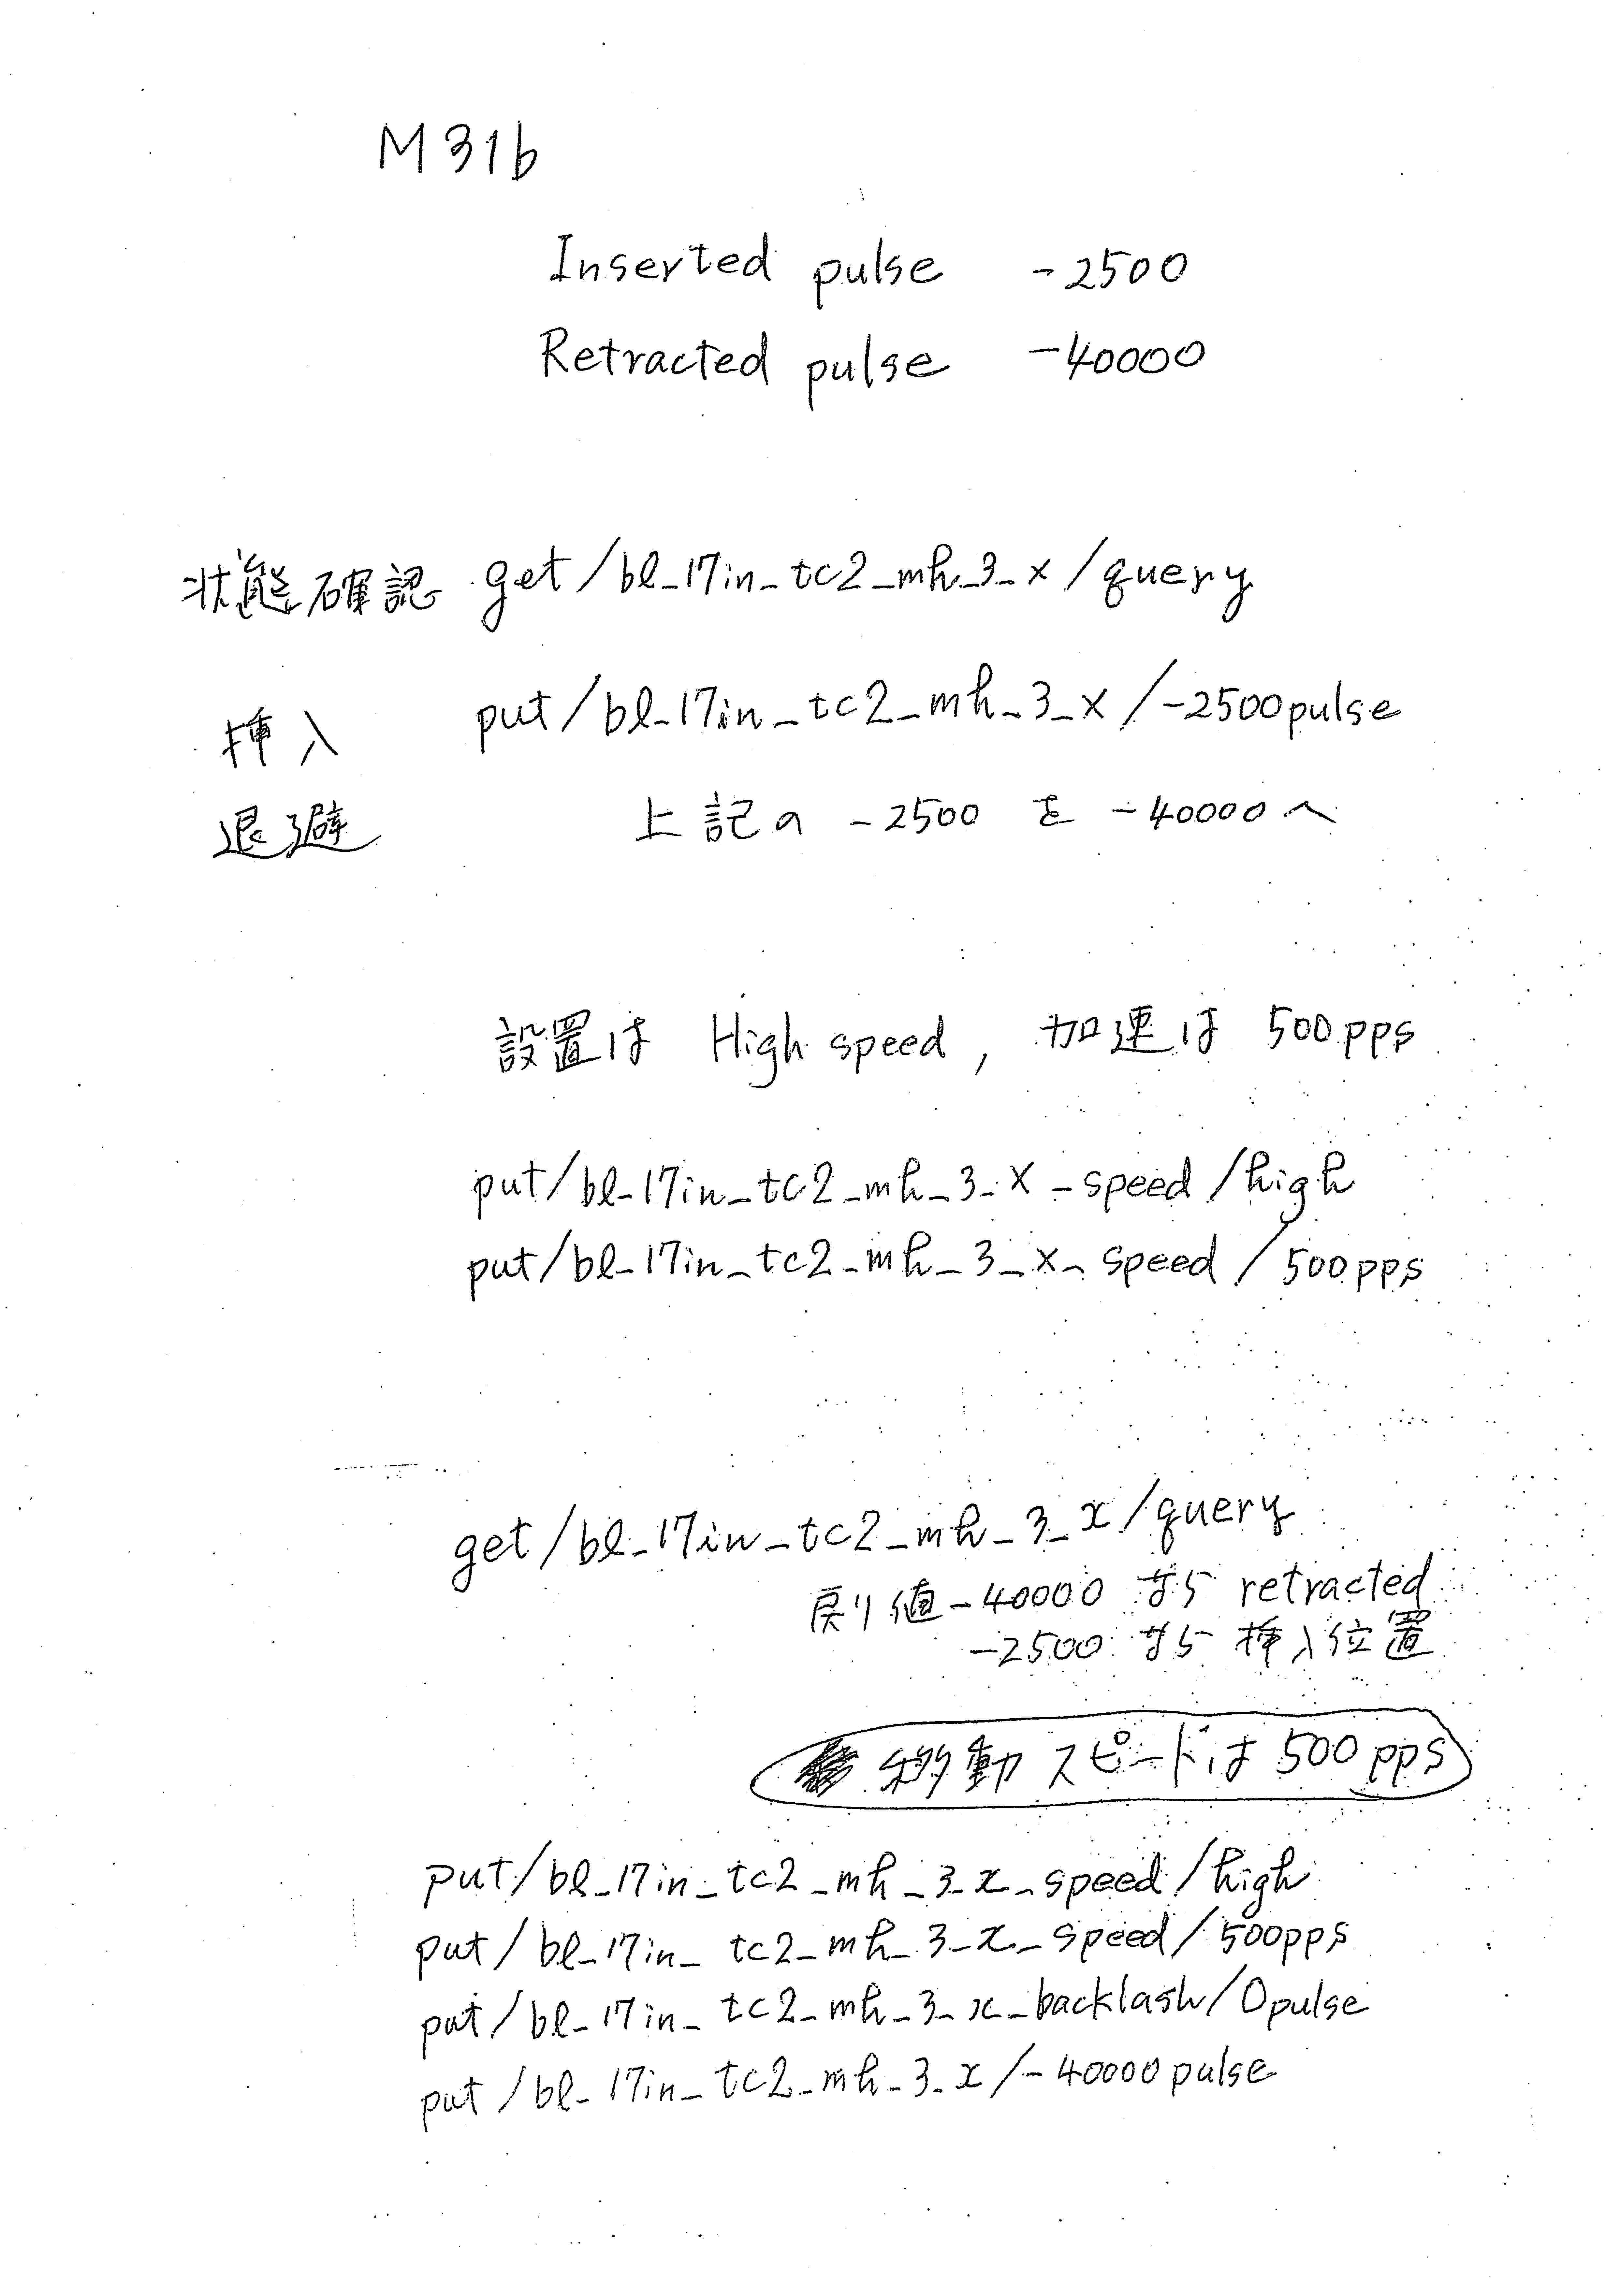 M31b
Inserted pulse -2500
Retracted pulse -40000
状態確認 get/bl_17in_tc2_mh_3_x/query
挿入 put/bl_17in_tc2_mh_3_x/-2500pulse
退避 上記の -2500 を -40000へ
設置は High speed, 加速は 500pps
put/bl_17in_tc2_mh_3_x_speed/high
put/bl_17in_tc2_mh_3_x_speed/500pps
get/bl_17in_tc2_mh_3_x/query
戻り値-40000 なら retracted
-2500 なら 挿入位置
移動スピードは 500pps
put/bl_17in_tc2_mh_3_x_speed/high
put/bl_17in_tc2_mh_3_x_speed/500pps
put/bl_17in_tc2_mh_3_x_backlash/0pulse
put/bl_17in_tc2_mh_3_x/-40000pulse